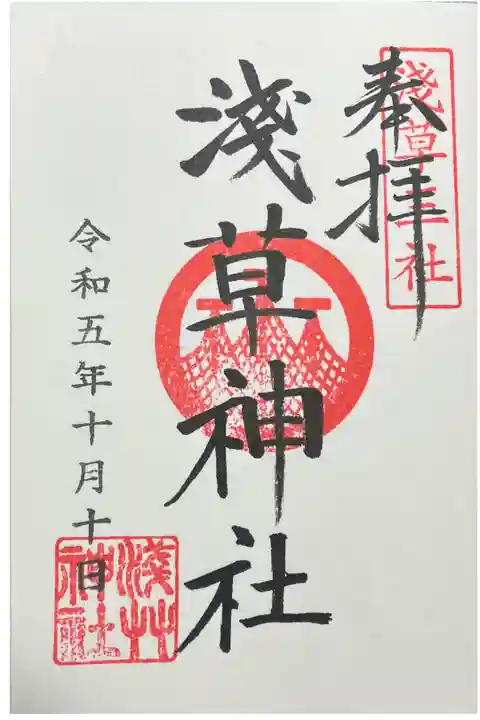 奉拝
淺草三社
淺草神社
令和五年十月十日
淺草
神社